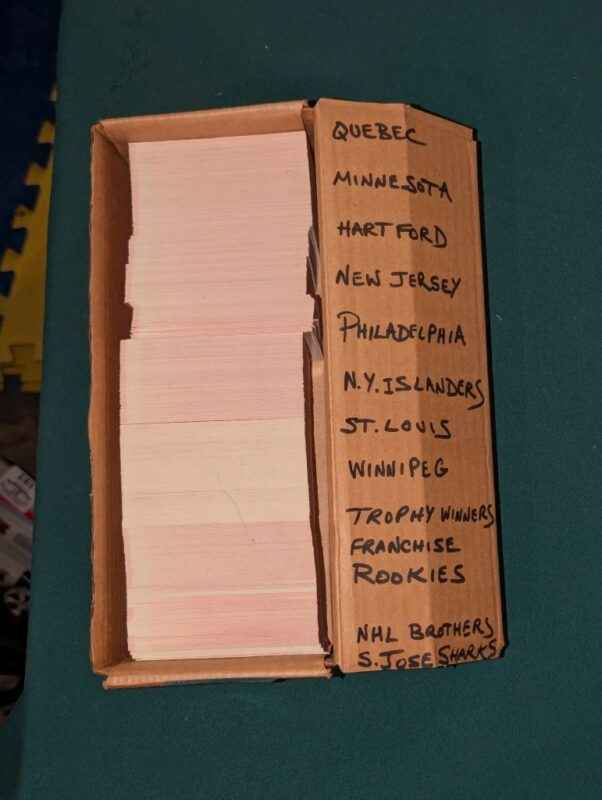 QUEBEC
MINNESOTA
HARTFORD
NEW JERSEY
PHILADELPHIA
N.Y. ISLANDERS
ST. LOUIS
WINNIPEG
TROPHY WINNERS
FRANCHISE
ROOKIES
NHL BROTHERS
S. JOSE SHARKS